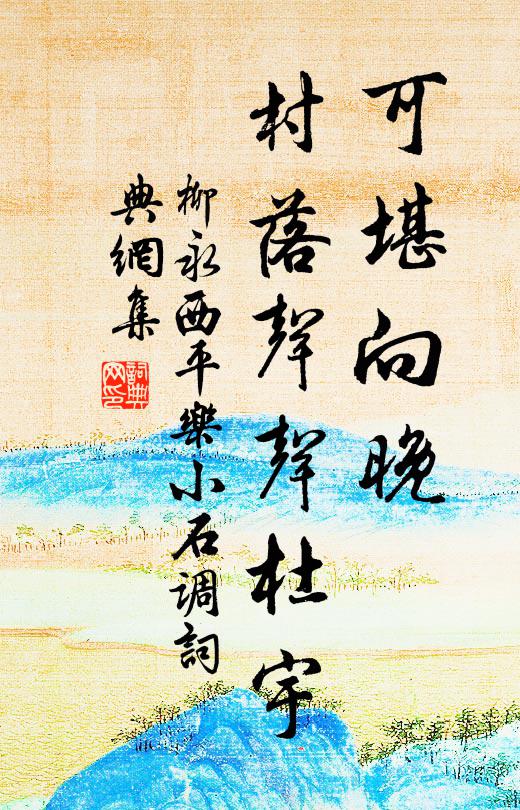 可堪向晚
村落聲聲杜宇
柳永西平樂小石調詞
典網集
詞典网印